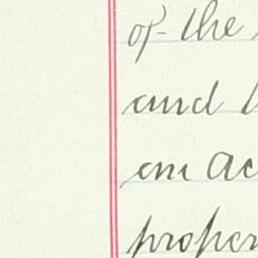 of the
and
an ac
proper